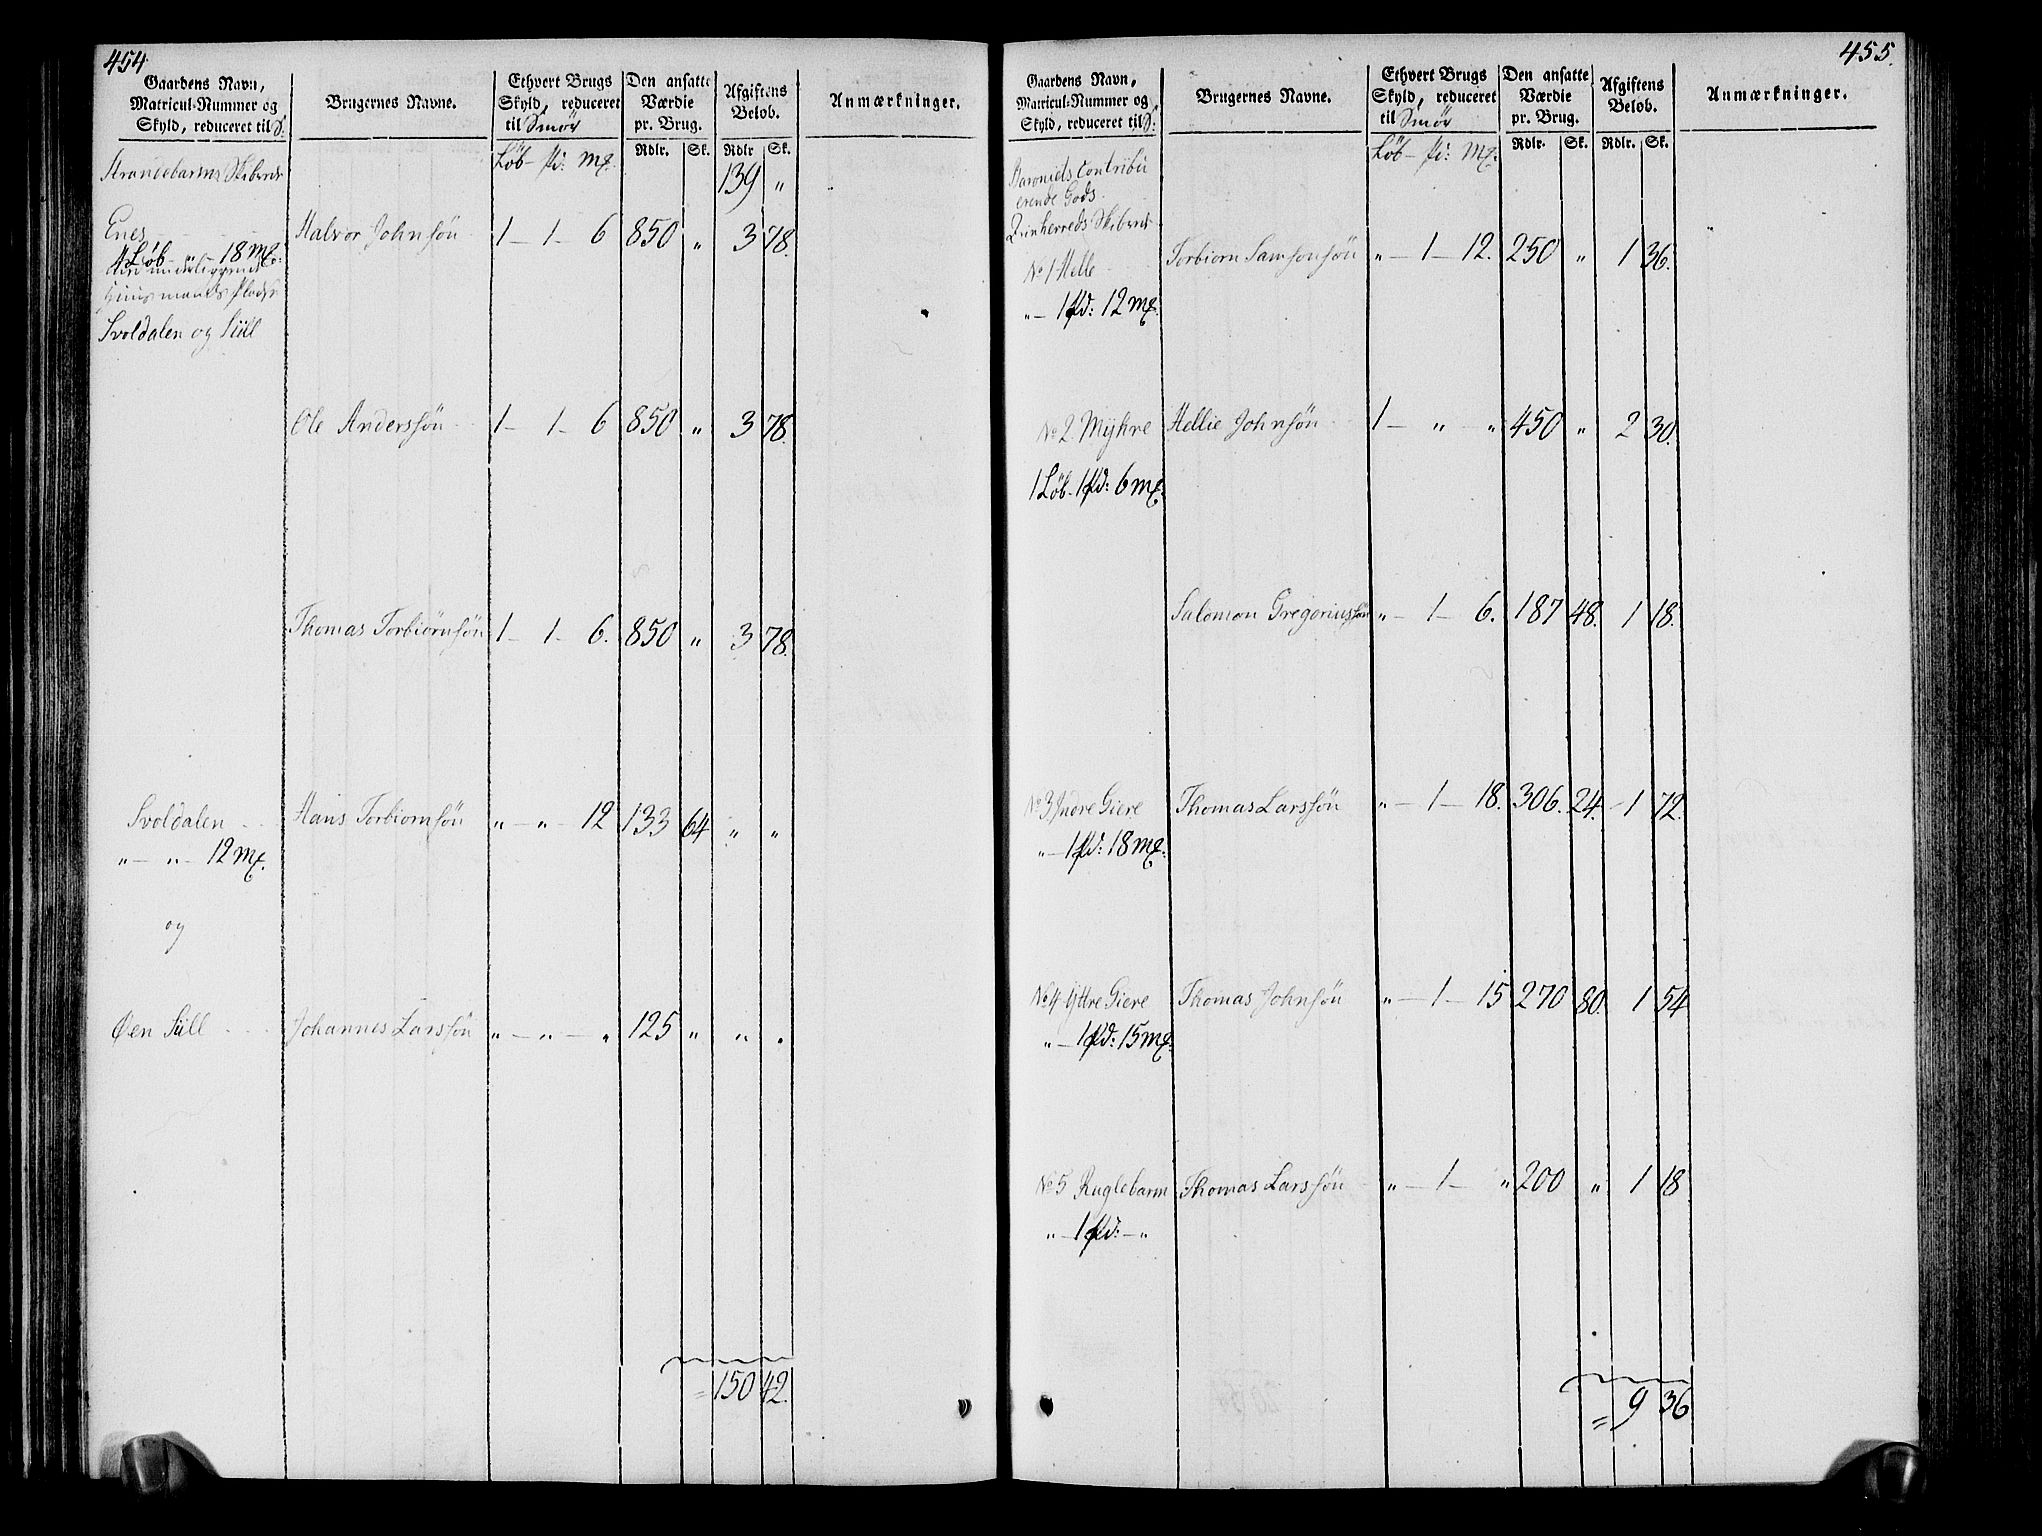 454.
Gaardens Navn,
Matricul-Nummer og
Skyld, reduceret til S.
Brugernes Navne.
Ethvert Brugs
Skyld, reduceret
til Smør
Den ansatte
Værdie
pr. Brug.
Afgiftens
Beløb.
Anmærkninger.
Rdlr. Sk. Rdlr Sk.
Løb - pd: mk.
Strandebarms Skibrede 139 „
Enes Halvor Johnsøn 1 - 1 - 6 850 „ 3 78.
4 Løb - „ - 18 mk:
underliggende
Huusmands Pladse
Svoldalen og Siill
Ole Anderssøn 1 - 1 - 6 850 „ 3 78.
Thomas Torbiørnsøn 1 - 1 - 6. 850 „ 3 78.
Svoldalen Hans Torbiornsøn „ - „ - 12 133 64 „ „
„ - „ - 12 mk.
og
Øen Siill Johannes Larssøn „ - „ - „ 125 „ „ „
= 150 42.
455.
Gaardens Navn,
Matricul-Nummer og
Skyld, reduceret til S.
Brugernes Navne.
Ethvert Brugs
Skyld, reduceret
til Smør
Den ansatte
Værdie
pr. Brug.
Afgiftens
Beløb.
Anmærkninger.
Rdlr. Sk. Rdlr. Sk.
Løb - pd: mk.
Baroniets Contribu
erende Gods
Qvinherreds Skibrede
No 1 Helle Torbiorn Samsonsøn „ - 1 - 12. 250 „ 1 36.
„ - 1 pd: 12 mk.
No 2 Myhre Hellie Johnsøn 1 - „ - „ 450 „ 2 30.
1 Løb - 1 pd: 6 mk.
Salomon Gregoriussøn „ - 1 - 6. 187 48. 1 18.
No 3 Indre Giere Thomas Larssøn „ - 1 - 18. 306. 24. 1 72.
„ - 1 pd: 18 mk.
No 4 Yttre Giere Thomas Johnsøn „ - 1 - 15 270 80. 1 54
„ - 1 pd: 15 mk.
No 5 Ruglebarm Thomas Larssøn „ - 1 - „ 200 „ 1 18
„ - 1 pd: - „
= 9 36